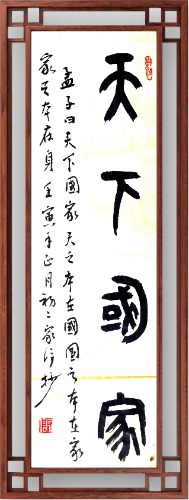 天下國家
孟子曰天下國家天之本在國國之本在家
家之本在身壬寅年正月初二家抄